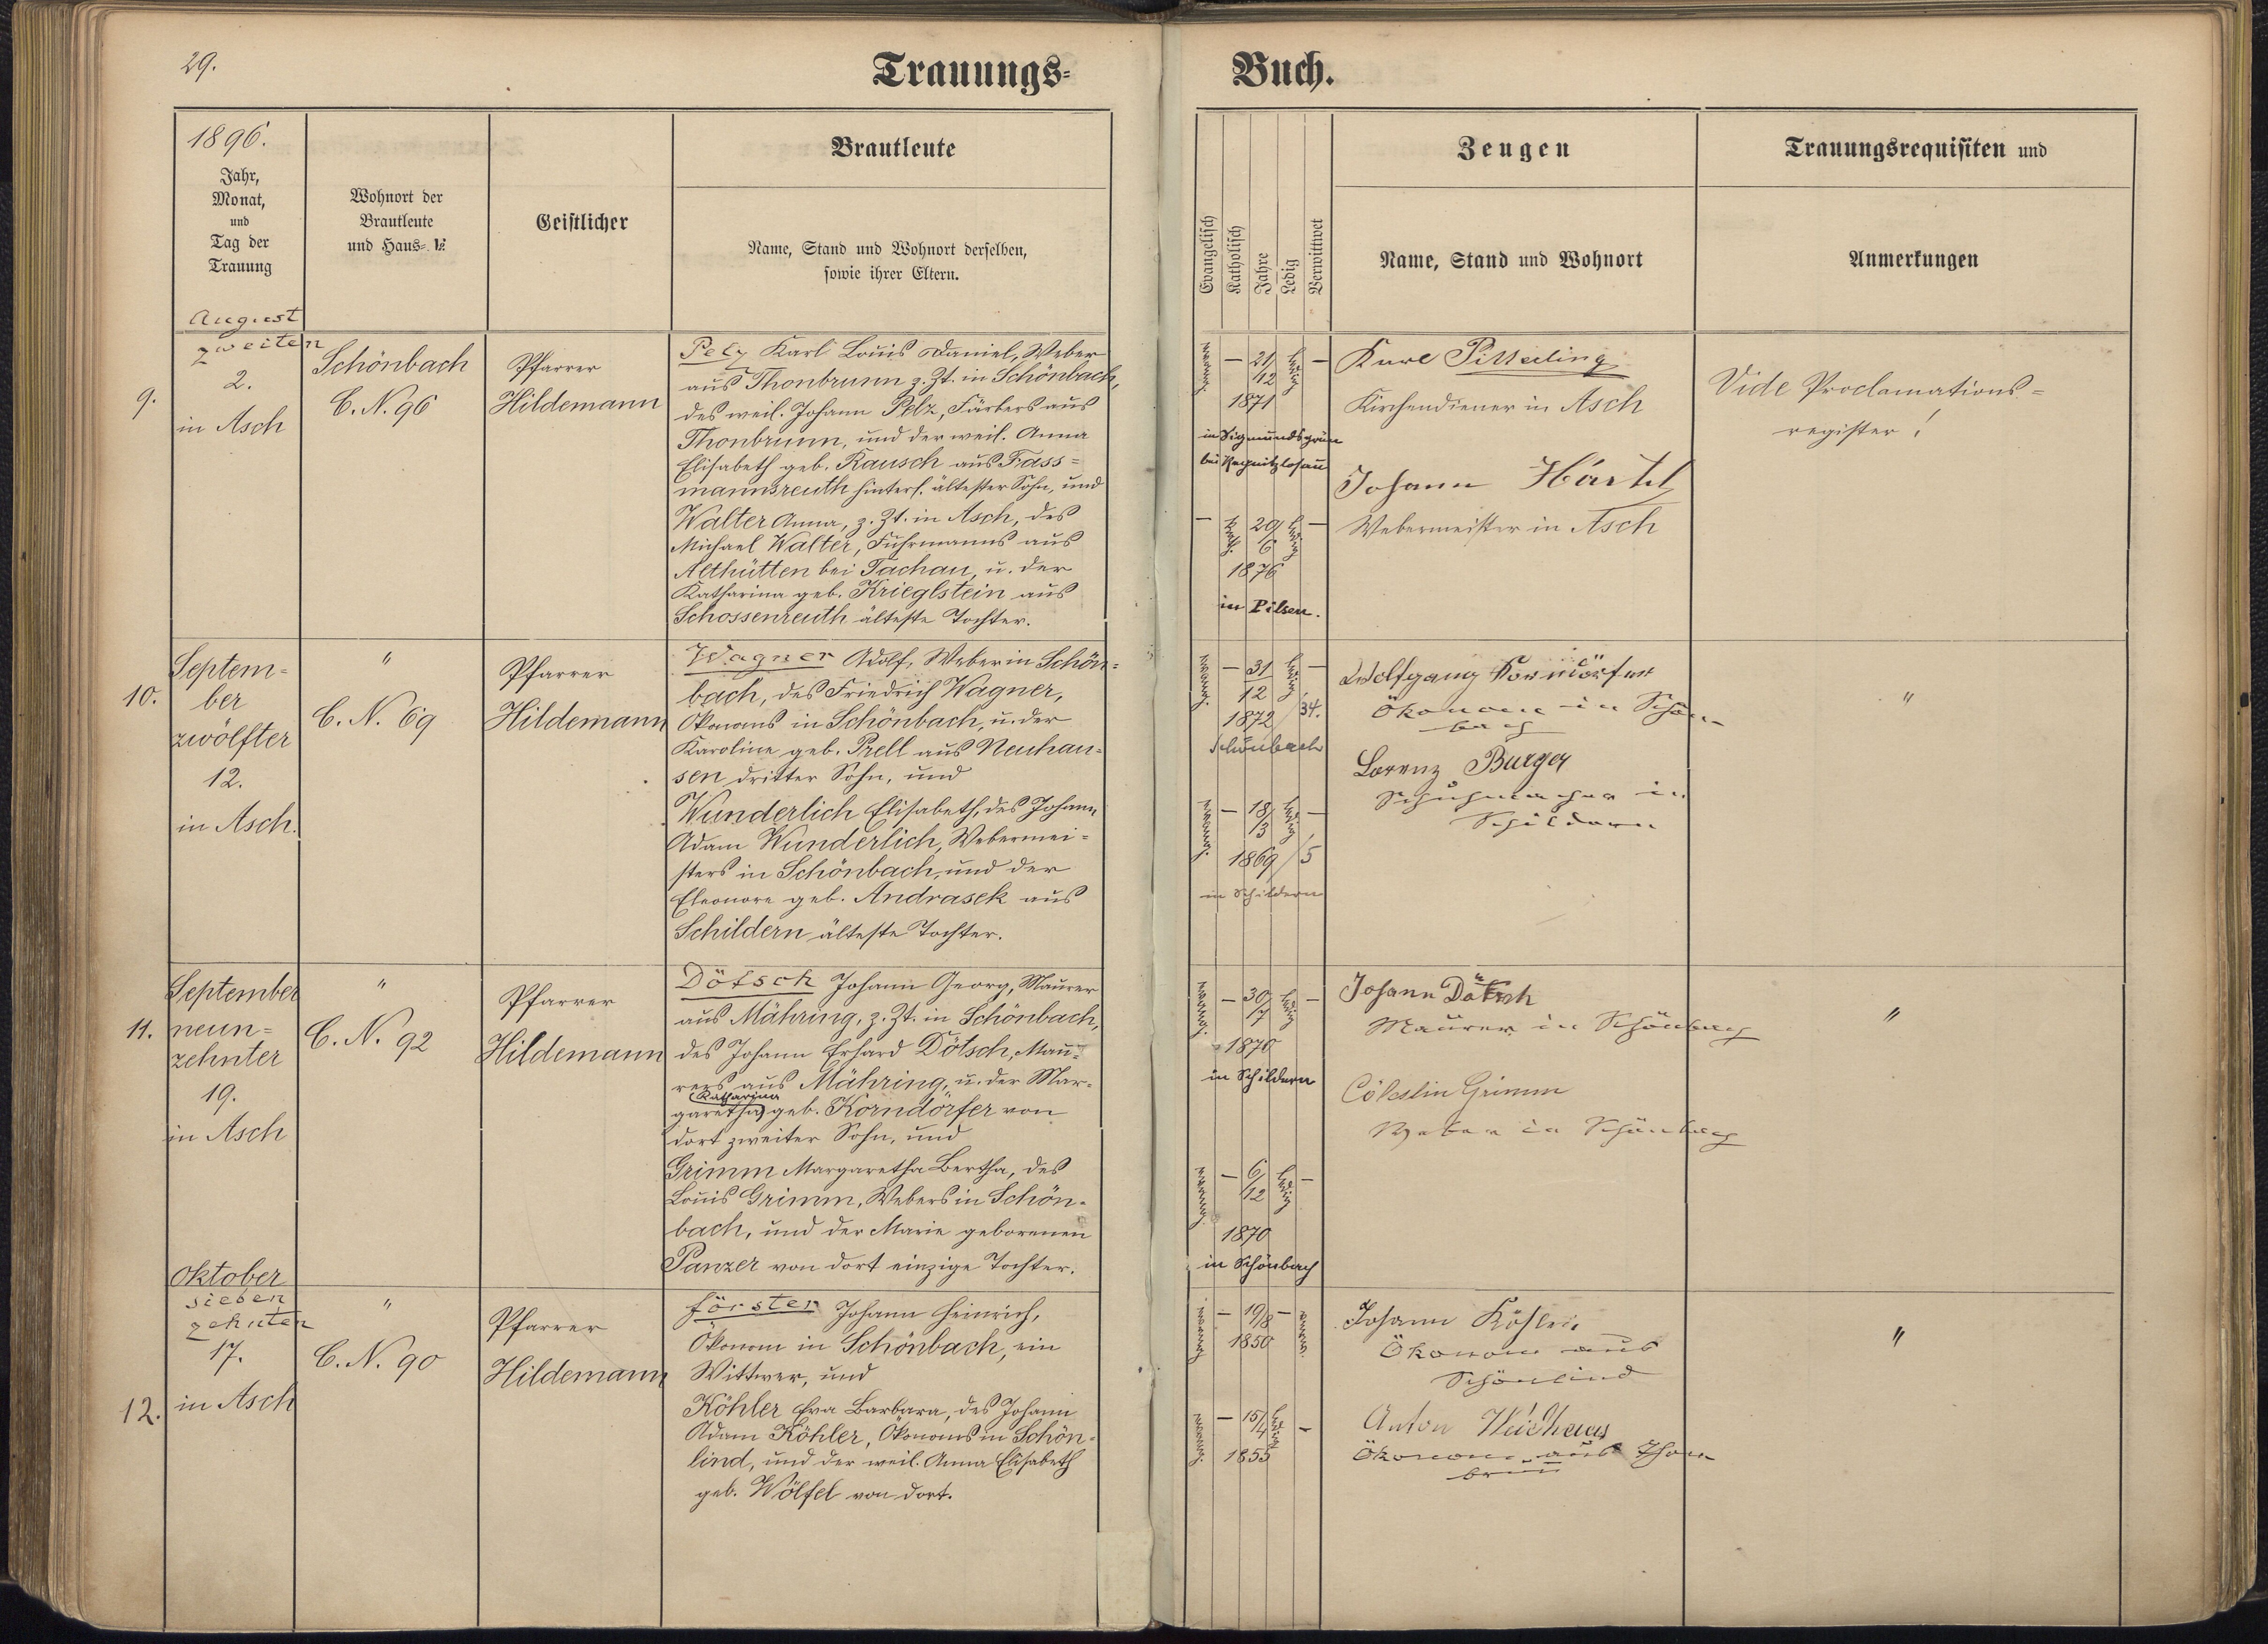 29.
Trauungs-
Buch.
1896.
Jahr,
Monat,
und
Tag der
Trauung
Wohnort der
Brautleute
und Haus-№
Geistlicher
Brautleute
Name, Stand und Wohnort derselben,
sowie ihrer Eltern.
Evangelisch
Katholisch
Jahre
Ledig
Verwittwet
Zeugen
Name, Stand und Wohnort
Trauungsrequisiten und
Anmerkungen
9.
August
zweiten
2.
in Asch
Schönbach
C. N. 96
Pfarrer
Hildemann
Pelz Karl Louis Daniel, Weber
aus Thonbrunn z. Zt. in Schönbach,
des weil. Johann Pelz, Färbers aus
Thonbrunn, und der weil. Anna
Elisabeth geb. Rausch aus Fass=
mannsreuth hinterl. ältester Sohn, und
Walter Anna, z. Zt. in Asch, des
Michael Walter, Fuhrmanns aus
Althütten bei Tachau, u. der
Katharina geb. Krieglstein aus
Schossenreuth älteste Tochter.
evang. — 21/12 ledig —
1871
in Sigmundsgrün
bei Regnitzlosau
— kath. 29/6 ledig —
1876
in Pilsen.
Karl
Kirchendiener in Asch
Johann Härtel
Webermeister in Asch
Vide Proclamations=
register!
10.
Septem=
ber
zwölfter
12.
in Asch.
"
C. N. 69
Pfarrer
Hildemann
Wagner Adolf, Weber in Schön=
bach, des Friedrich Wagner,
Ökonoms in Schönbach, u. der
Karoline geb. Prell aus Neuhau=
sen dritter Sohn, und
Wunderlich Elisabeth, des Johann
Adam Wunderlich, Webermei=
sters in Schönbach, und der
Eleonore geb. Andrasek aus
Schildern älteste Tochter.
evang. — 31/12 ledig —
1872/34.
Schönbach
evang. — 18/3 ledig —
1869/5
in Schildern
Wolfgang Korndörfer
Ökonom in Schön
bach
Lorenz Burger
Schuhmacher in
Schildern
"
11.
September
neun=
zehnter
19.
in Asch
"
C. N. 92
Pfarrer
Hildemann
Dötsch Johann Georg, Maurer
aus Mähring, z. Zt. in Schönbach,
des Johann Erhard Dötsch, Mau=
rers aus Mähring, u. der Mar=
(Katharina)
garetha geb. Korndörfer von
dort zweiter Sohn, und
Grimm Margaretha Bertha, des
Louis Grimm, Webers in Schön=
bach, und der Marie geborenen
Panzer von dort einzige Tochter.
evang. — 30/7 ledig —
1870
in Schildern
evang. — 6/12 ledig —
1870
in Schönbach
Johann Dötsch
Maurer in Schönbach
Cölestin Grimm
Weber in Schönbach
"
12.
Oktober
sieben
zehnten
17.
in Asch
"
C. N. 90
Pfarrer
Hildemann
Förster Johann Heinrich,
Ökonom in Schönbach, ein
Wittwer, und
Köhler Eva Barbara, des Johann
Adam Köhler, Ökonoms in Schön=
lind, und der weil. Anna Elisabeth
geb. Wölfel von dort.
evang. — 19/8 —
1850
evang. — 15/4 ledig —
1855
Johann Köhler
Ökonom aus
Schönlind
Anton
Ökonom aus Thon
brun
"